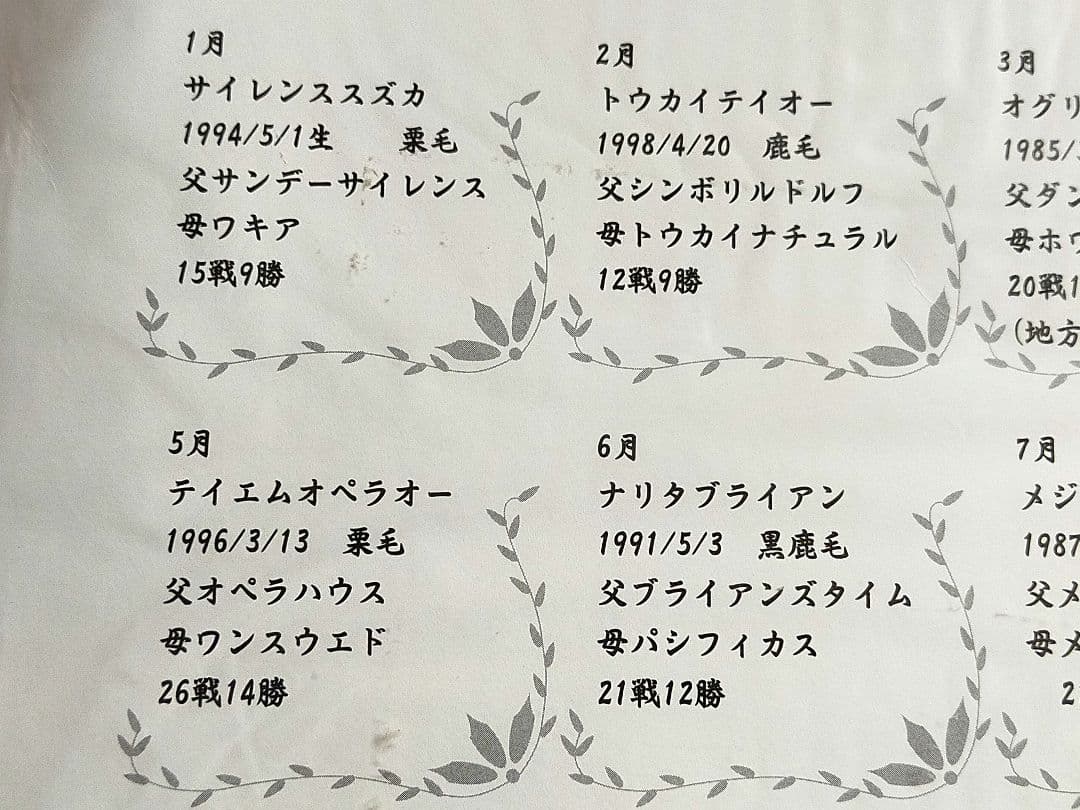 1月
サイレンススズカ
1994/5/1生 栗毛
父サンデーサイレンス
母ワキア
15戦9勝
2月
トウカイテイオー
1998/4/20 鹿毛
父シンボリルドルフ
母トウカイナチュラル
12戦9勝
3月
オグリ
1985/
父ダン
母ホワ
20戦1
(地方
5月
テイエムオペラオー
1996/3/13 栗毛
父オペラハウス
母ワンスウエド
26戦14勝
6月
ナリタブライアン
1991/5/3 黒鹿毛
父ブライアンズタイム
母パシフィカス
21戦12勝
7月
メジ
1987
父メ
母メ
2